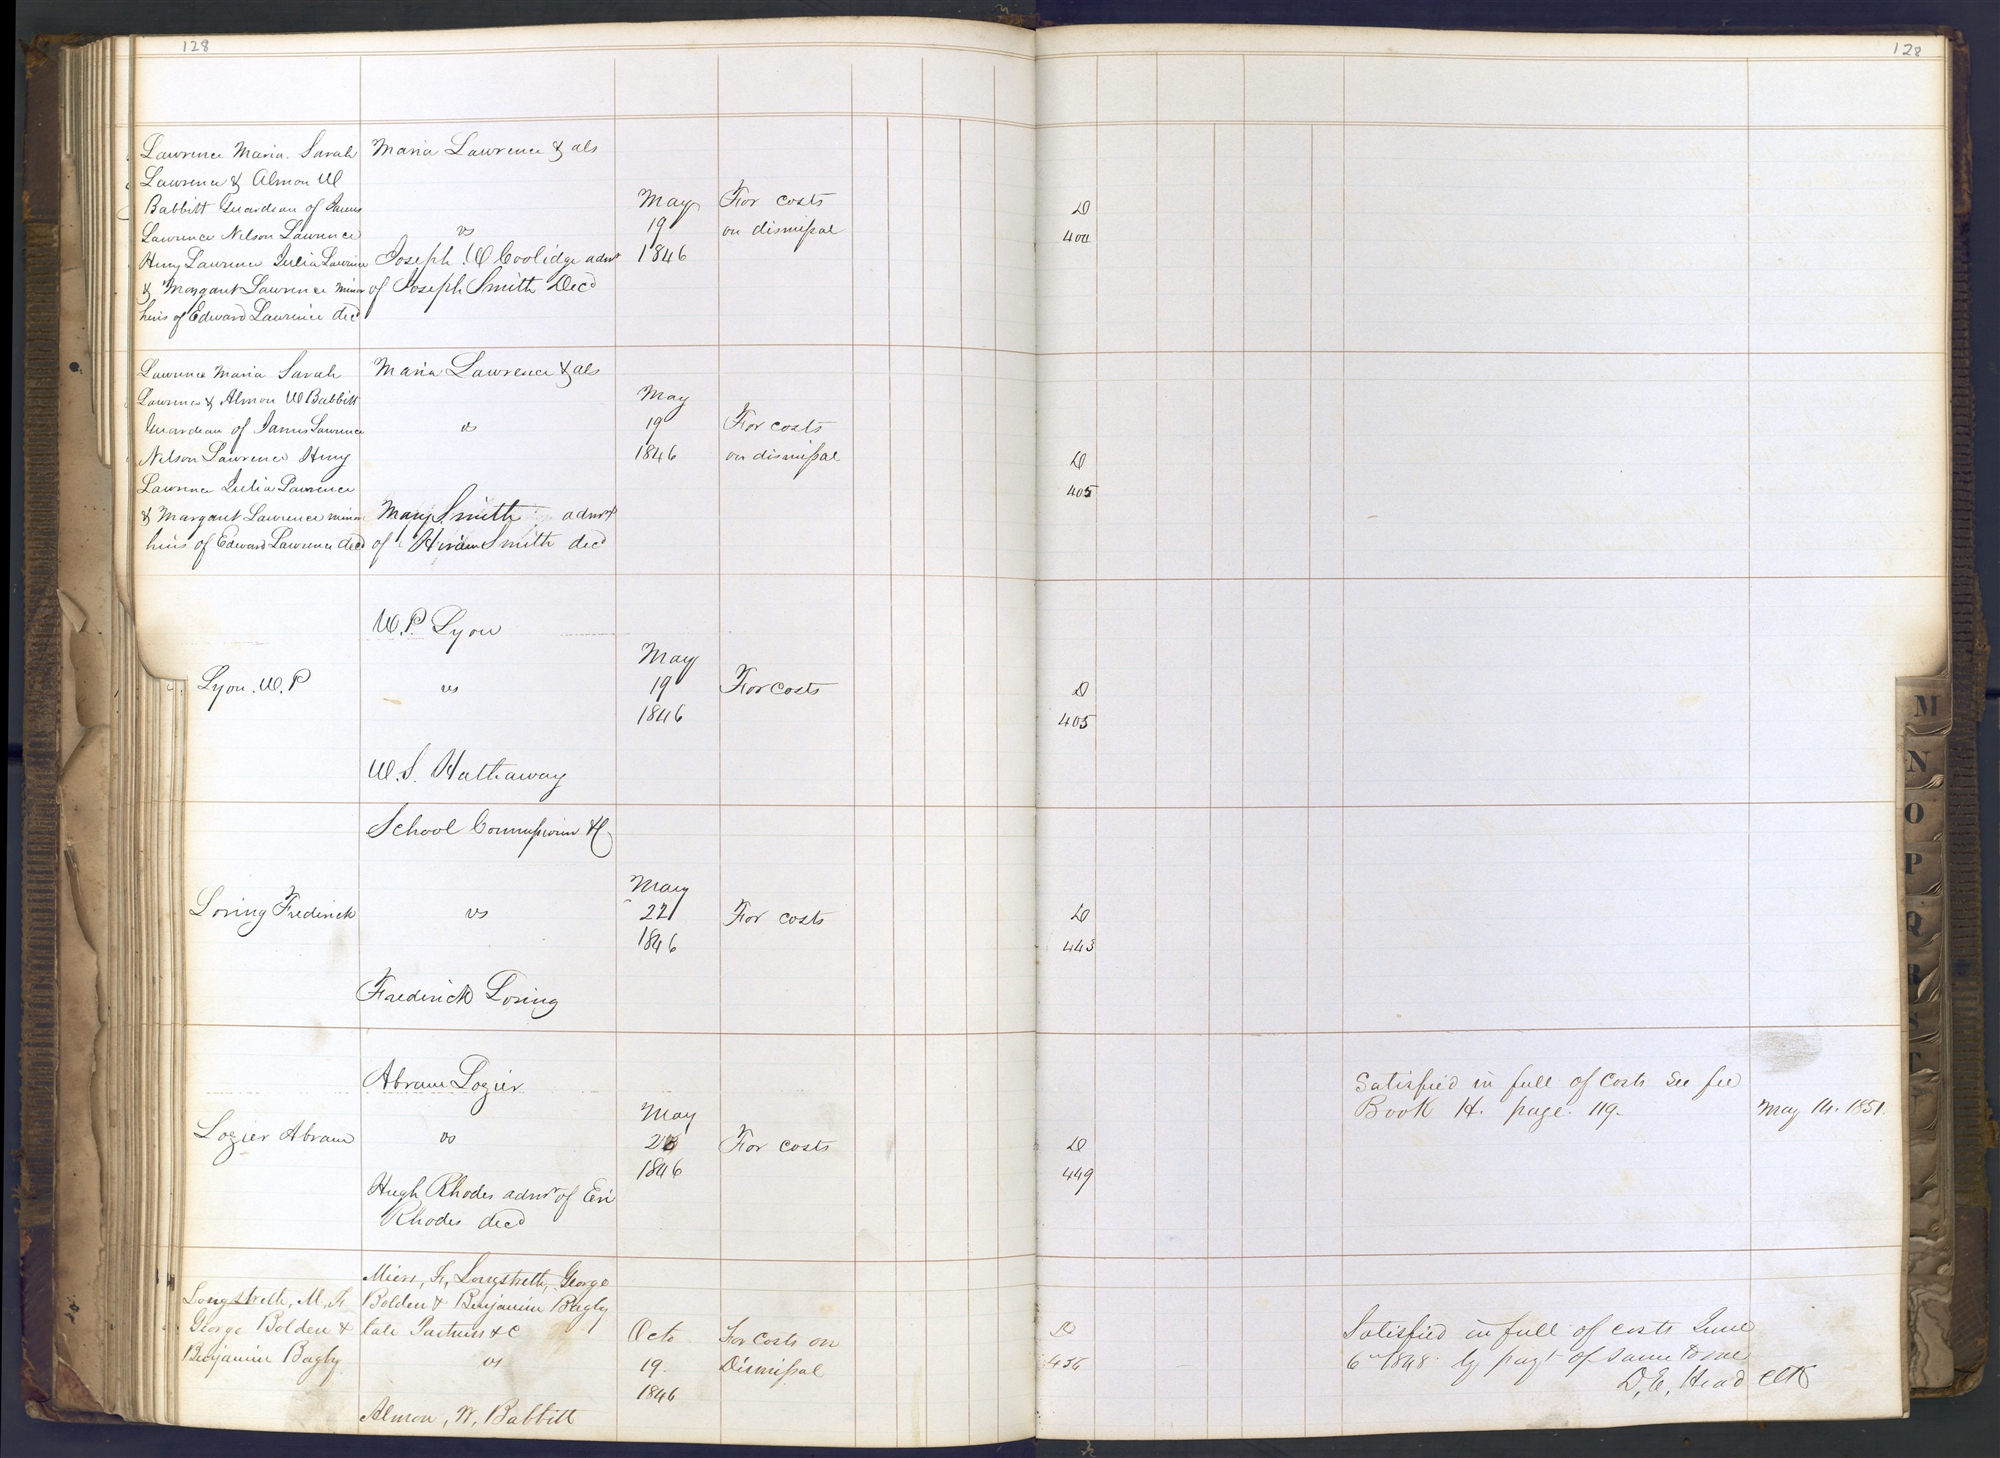 128
128
Lawrence Maria. Sarah
Lawrence & Almon W
Babbitt Guardian of James
Lawrence Nelson Lawrence
Henry Lawrence Julia Lawrence
& Margaret Lawrence minor
heirs of Edward Lawrence decd
Maria Lawrence & als
vs
Joseph W Coolidge admr
of Joseph Smith Decd
May
19
1846
For costs
on dismissal
D
404
Lawrence Maria Sarah
Lawrence & Almon W Babbitt
Guardian of James Lawrence
Nelson Lawrence Henry
Lawrence Julia Lawrence
& Margaret Lawrence minor
heirs of Edward Lawrence decd
Maria Lawrence & als
vs
Mary Smith admrx
of Hiram Smith decd
May
19
1846
For costs
on dismissal
D
405
Lyon. W. P
W. P. Lyon
vs
W. S. Hathaway
May
19
1846
For costs
D
405
Loring Frederick
School Commissioner &c
vs
Frederick Loring
May
22
1846
For costs
D
443
Lozier Abram
Abram Lozier
vs
Hugh Rhodes admr of Eri
Rhodes decd
May
1846
For costs
D
449
Satisfied in full of costs See fee
Book H. page. 119.
May 14. 1851
Longstreth, M, F,
George Bolden &
Benjamin Bagby
Miers, F, Longstreth, George
Bolden & Benjamin Bagby
late Partners &c
vs
Almon, W, Babbitt
Octo
19.
1846
For costs on
Dismissal
D
456
Satisfied in full of costs June
6th 1848. by payt of same to me
D, E, Head Clk
M
N
O
P
Q
R
S
T